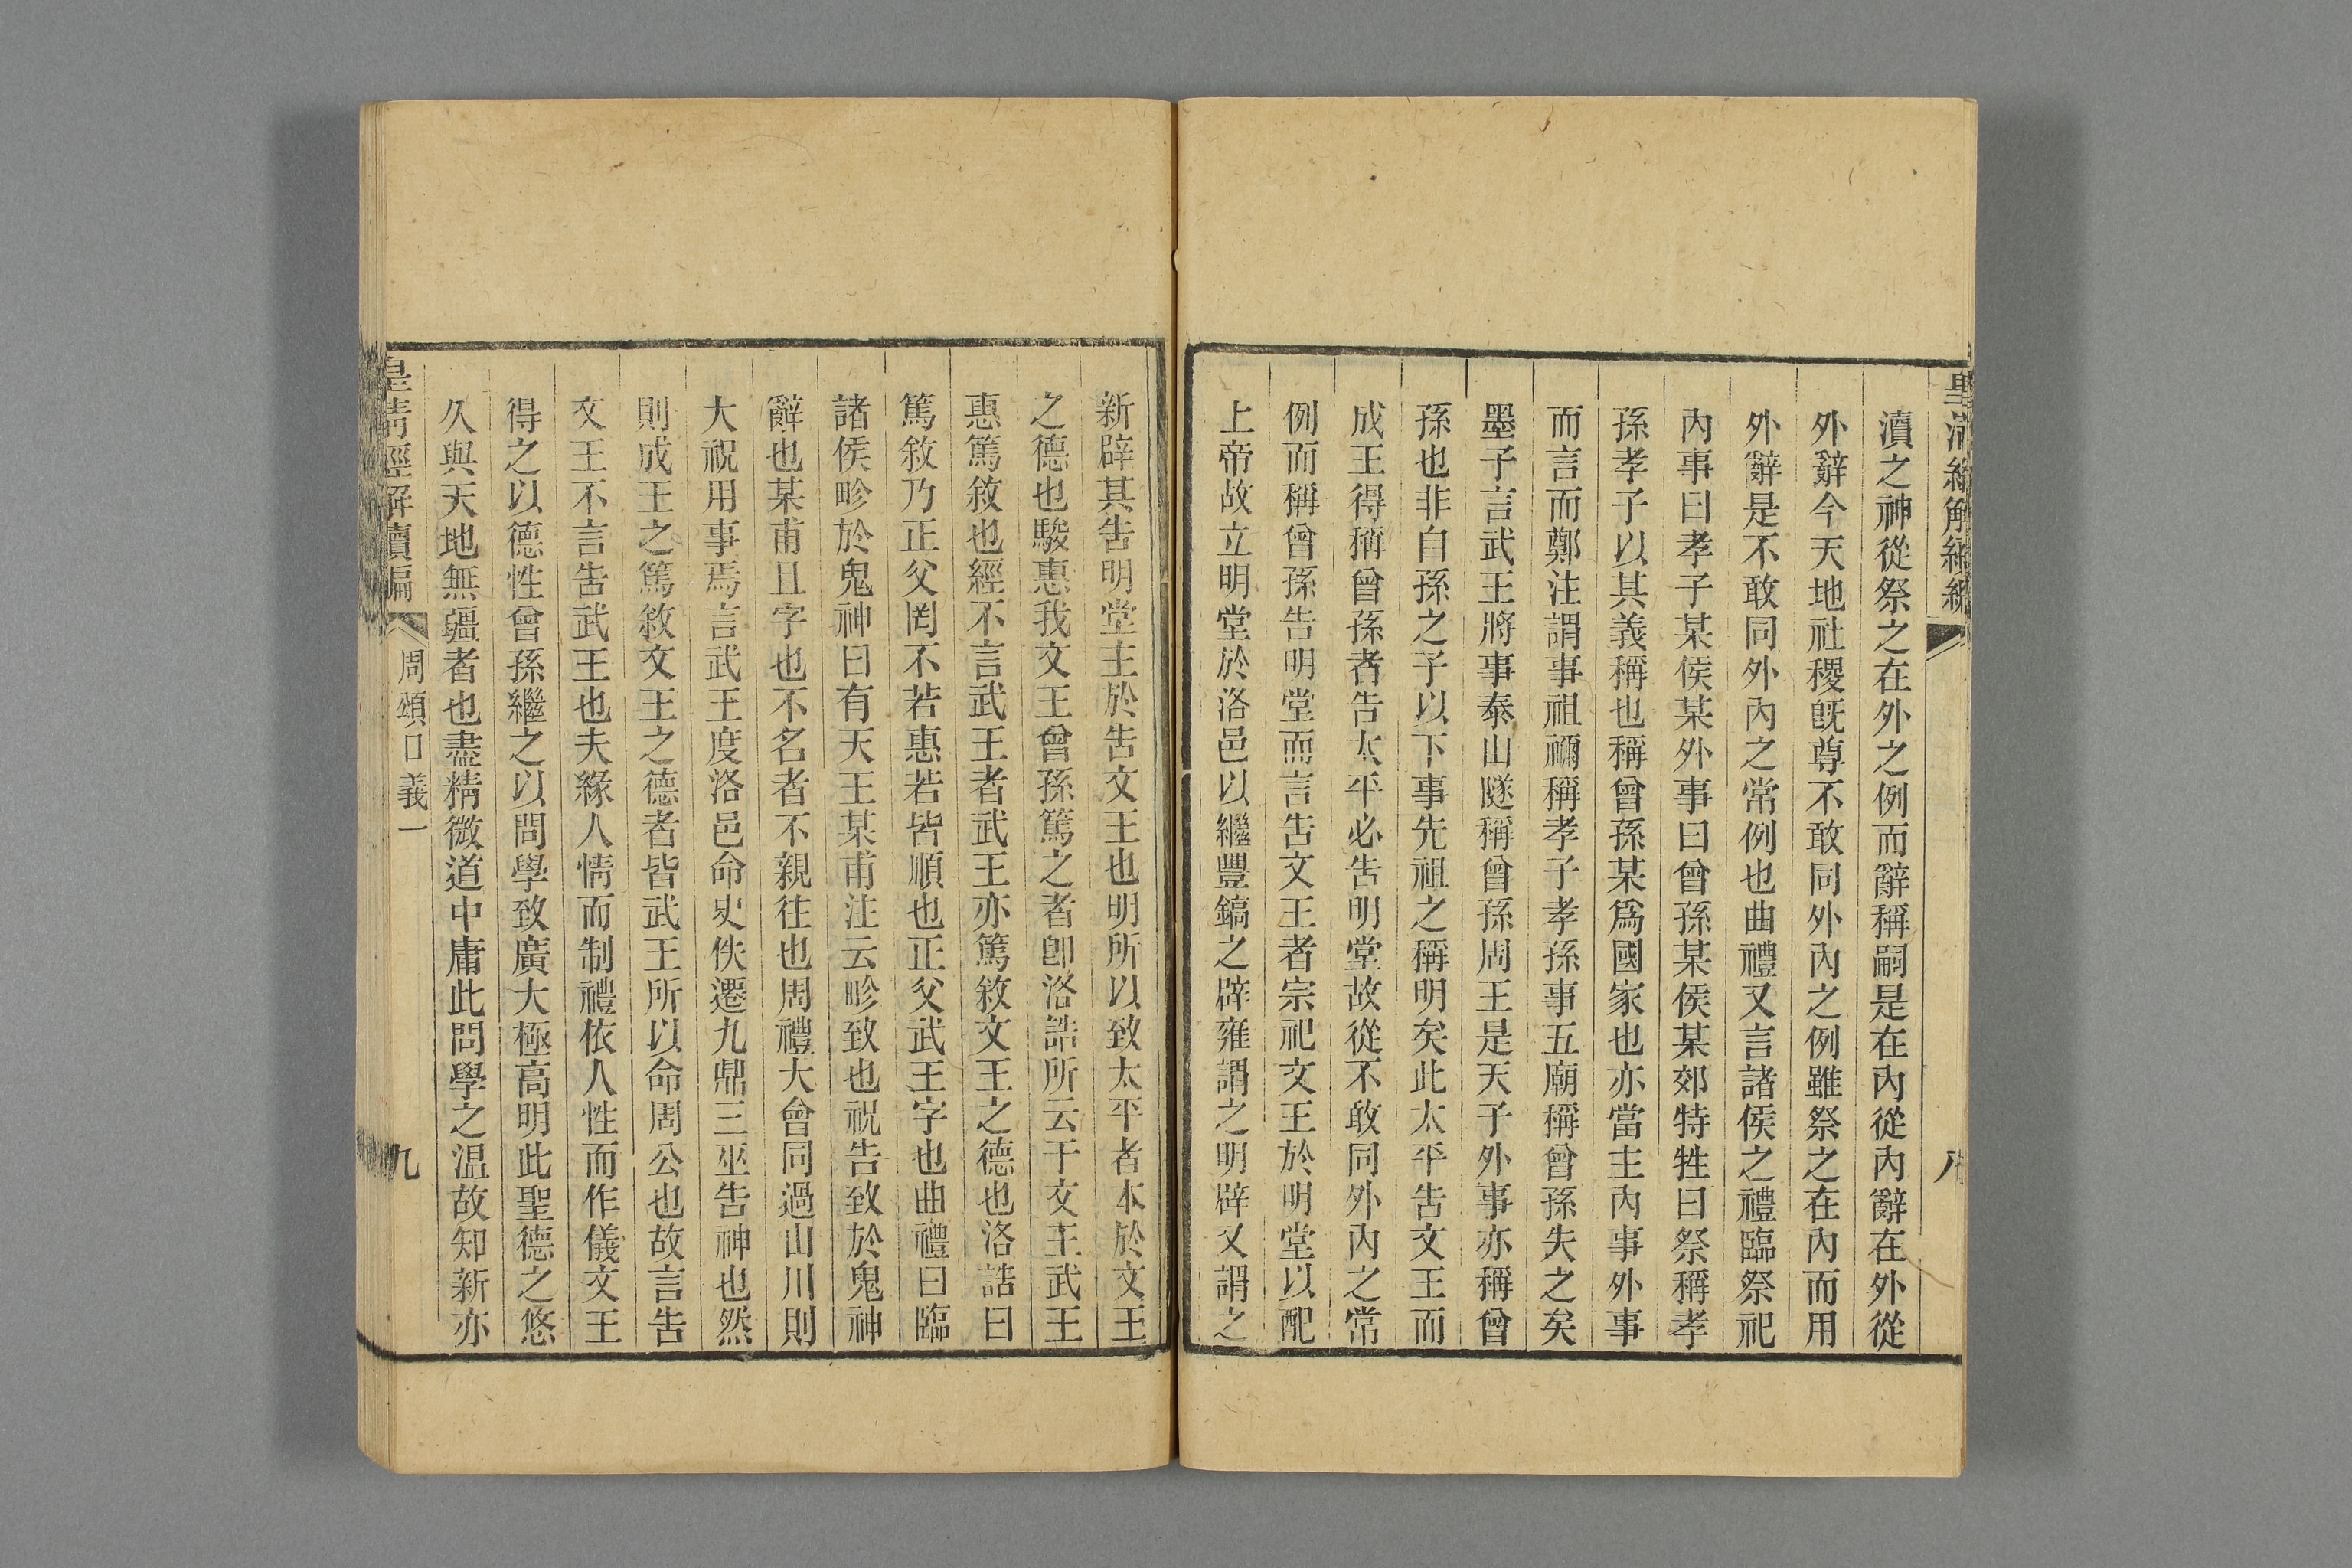 瀆之神從祭之在外之例而辭稱嗣是在內從內辭在外從
外辭今天地社稷旣尊不敢同外內之例雖祭之在內而用
外辭是不敢同外內之常例也曲禮又言諸侯之禮臨祭祀
內事曰孝子某侯某外事曰曾孫某侯某郊特牲曰祭稱孝
孫孝子以其義稱也稱曾孫某爲國家也亦當主內事外事
而言而鄭注謂事祖禰稱孝子孝孫事五廟稱曾孫失之矣
墨子言武王將事泰山隧稱曾孫周王是天子外事亦稱曾
孫也非自孫之子以下事先祖之稱明矣此太平告文王而
成王得稱曾孫者告太平必告明堂故從不敢同外內之常
例而稱曾孫告明堂而言告文王者宗祀文王於明堂以配
上帝故立明堂於洛邑以繼豐鎬之辟雍謂之明辟又謂之
新辟其告明堂主於告文王也明所以致太平者本於文王
之德也駿惠我文王曾孫篤之者卽洛誥所云于文王武王
惠篤敘也經不言武王者武王亦篤敘文王之德也洛誥曰
篤敘乃正父罔不若惠若皆順也正父武王字也曲禮曰臨
諸侯畛於鬼神曰有天王某甫注云畛致也祝告致於鬼神
辭也某甫且字也不名者不親往也周禮大會同過山川則
大祝用事焉言武王度洛邑命史佚遷九鼎三巫告神也然
則成王之篤敘文王之德者皆武王所以命周公也故言告
文王不言告武王也夫緣人情而制禮依人性而作儀文王
得之以德性曾孫繼之以問學致廣大極高明此聖德之悠
久與天地無疆者也盡精微道中庸此問學之温故知新亦
皇清經解續編
周頌口義一
九